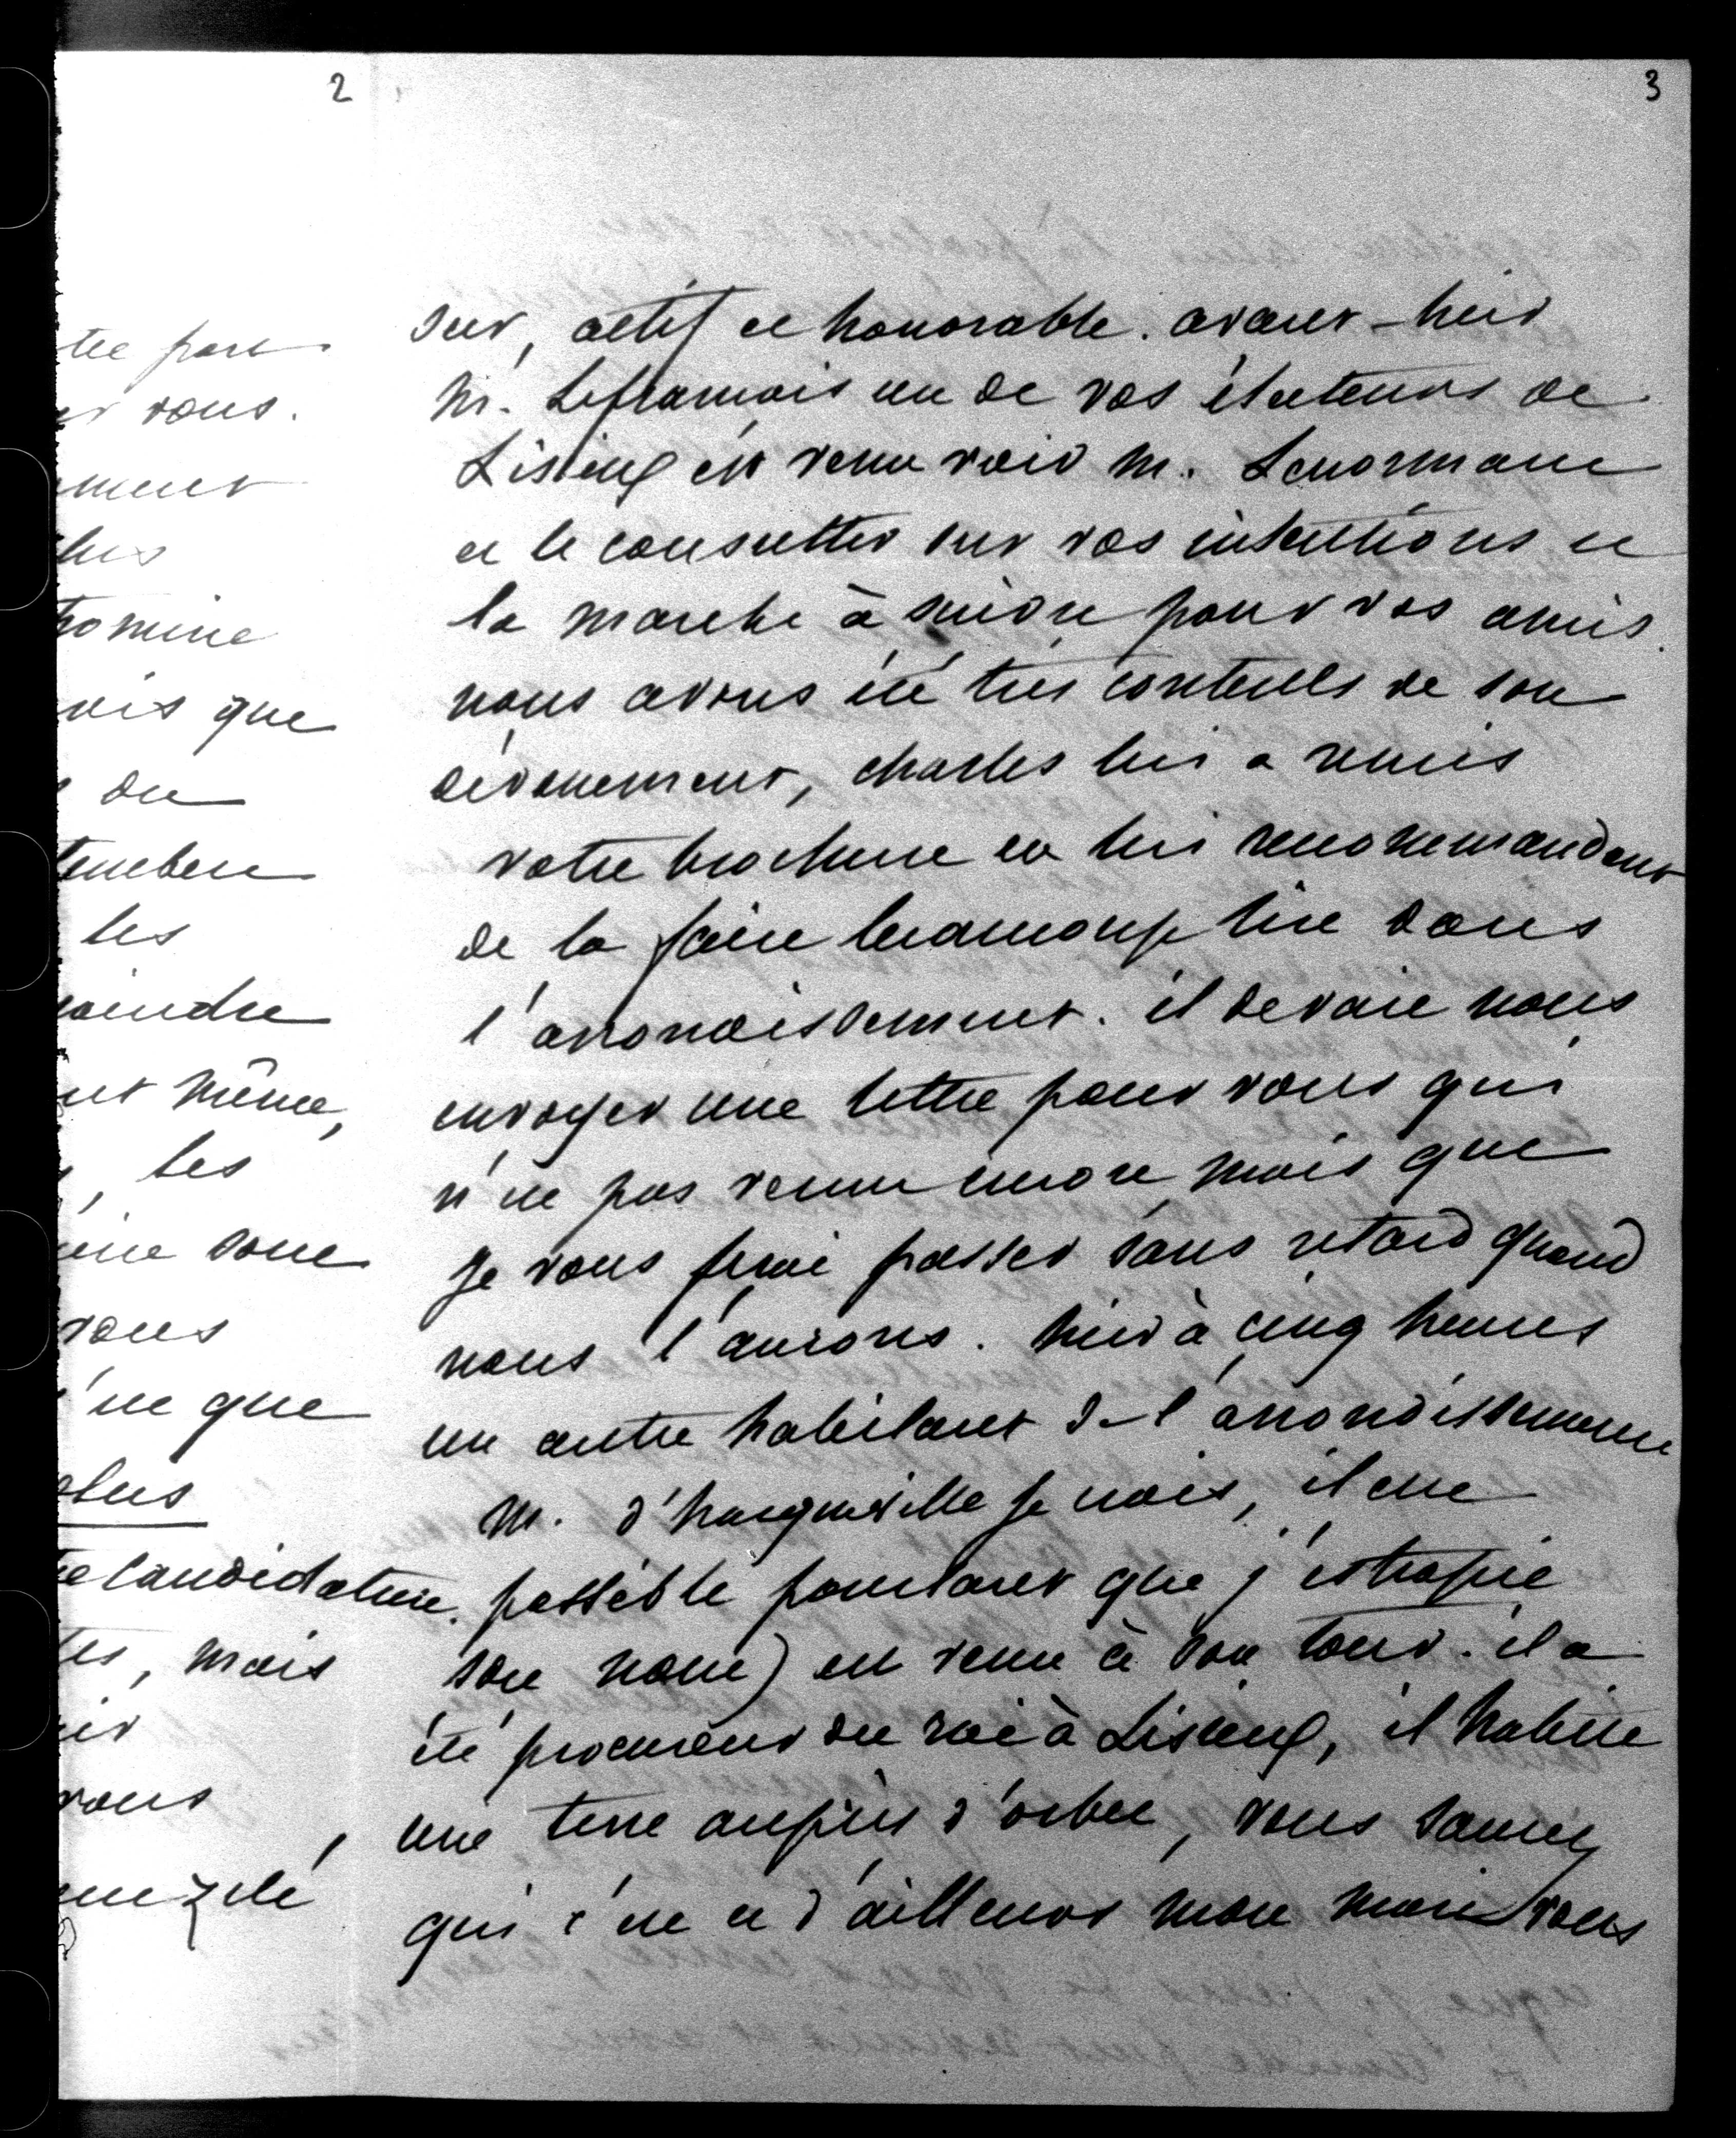 2
tre part
er vous.
ment
lus
romine
vois que
du
les
aindre
et même,
, les
sont
vous
c'est que
plus
re candidature.
tes, mais
vous
zélé
3
sur, actif et honorable. avant-hier
M. Lefrançois un de vos électeurs de
Lisieux est venu voir M. Lenormant
et le consulter sur vos intentions et
la marche à suivre pour vos amis
nous avons été très contents de son
dévouement, charles lui a remis
votre brochure en lui recommandant
de la faire beaucoup lire dans
l'arrondissement. il devait nous
envoyer une lettre pour vous qui
n'est pas venue encore mais que
je vous ferai passer sans retard quand
nous l'aurons. hier à cinq heures
un autre habitant de l'arrondissement
M. d'hacqueville je crois, il est
possible pourtant que j'estropie
son nom) est venu à son tour. il a
été procureur du roi à Lisieux, il habite
une terre auprès d'orbec, vous saurez
qui c'est et d'ailleurs mon mari vous